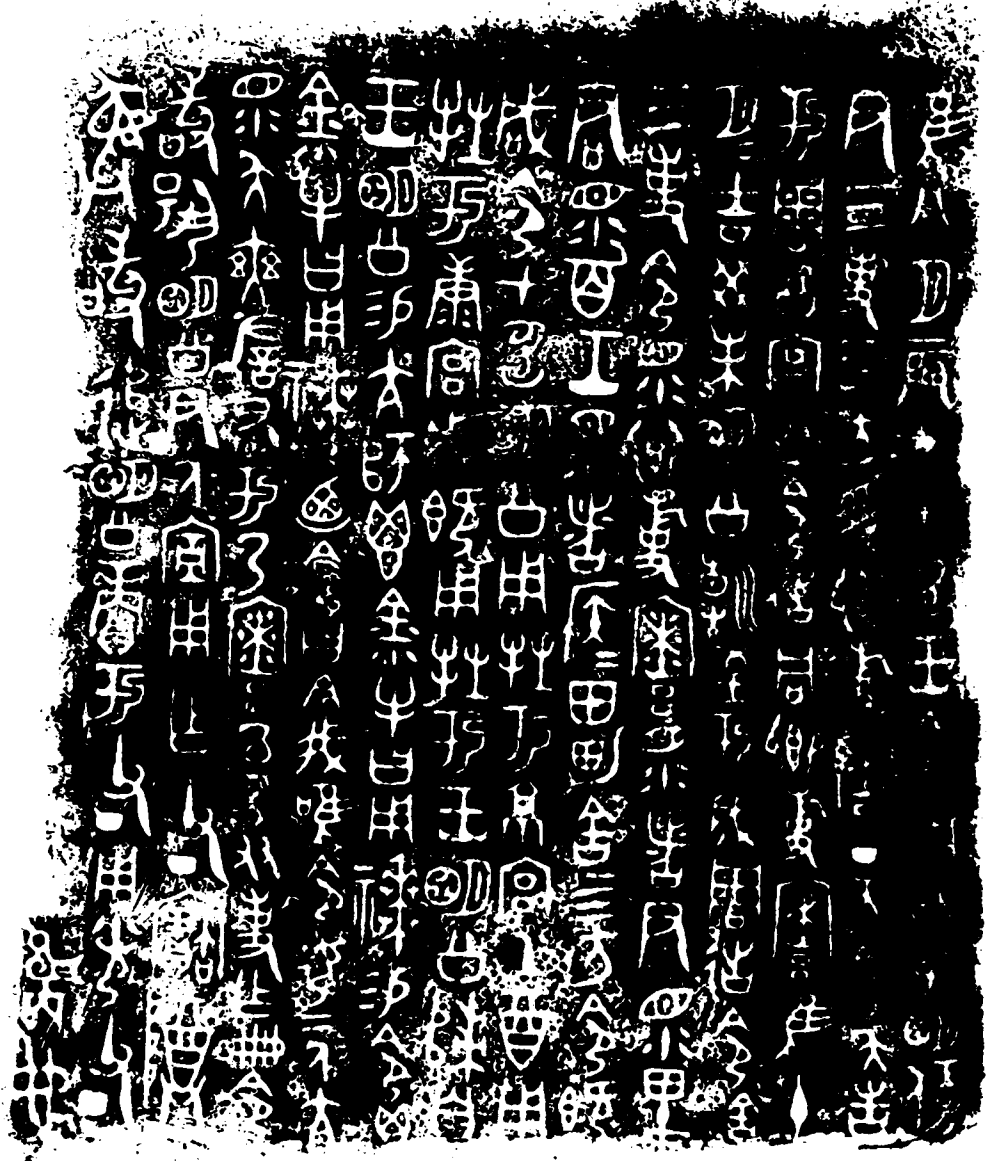 隹八月辰才甲申王令周公子明保
尹三事四方受卿事寮丁亥令夨告
于周公宮公令𢓊同卿事寮隹十
月月吉癸未明公朝至于成周𢓊令舍
三事令眔卿事寮眔者尹眔里
君眔百工眔者侯侯田男舍四方令既
咸令甲申明公用牲于京宮乙酉用
牲于康宮咸既用牲于王明公歸自
王明公易亢師鬯金小牛曰用𥛔易令鬯
金小牛曰用𥛔迺令曰今我隹令女二人亢
眔夨奭左右于乃寮以乃友事乍冊令
敢揚明公尹氒宁用乍父丁寶尊彝
敢追明公賞于父丁用光父丁
雋冊